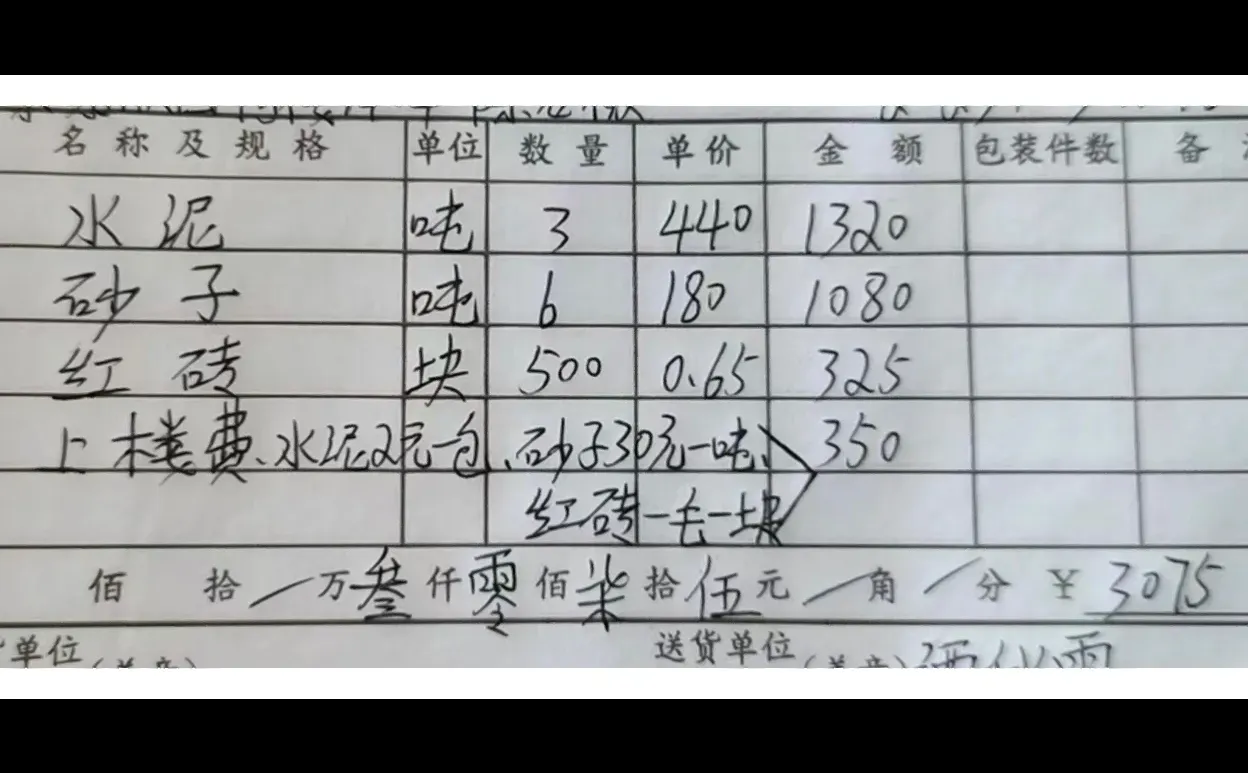 名称及规格 单位 数量 单价 金额 包装件数 备
水泥 吨 3 440 1320
砂子 吨 6 180 1080
红砖 块 500 0.65 325
上楼费、水泥2元一包、砂子30元一吨、 350
红砖一毛一块
佰 拾 万叁仟零佰柒拾伍元 角 分 ¥ 3075
单位 送货单位